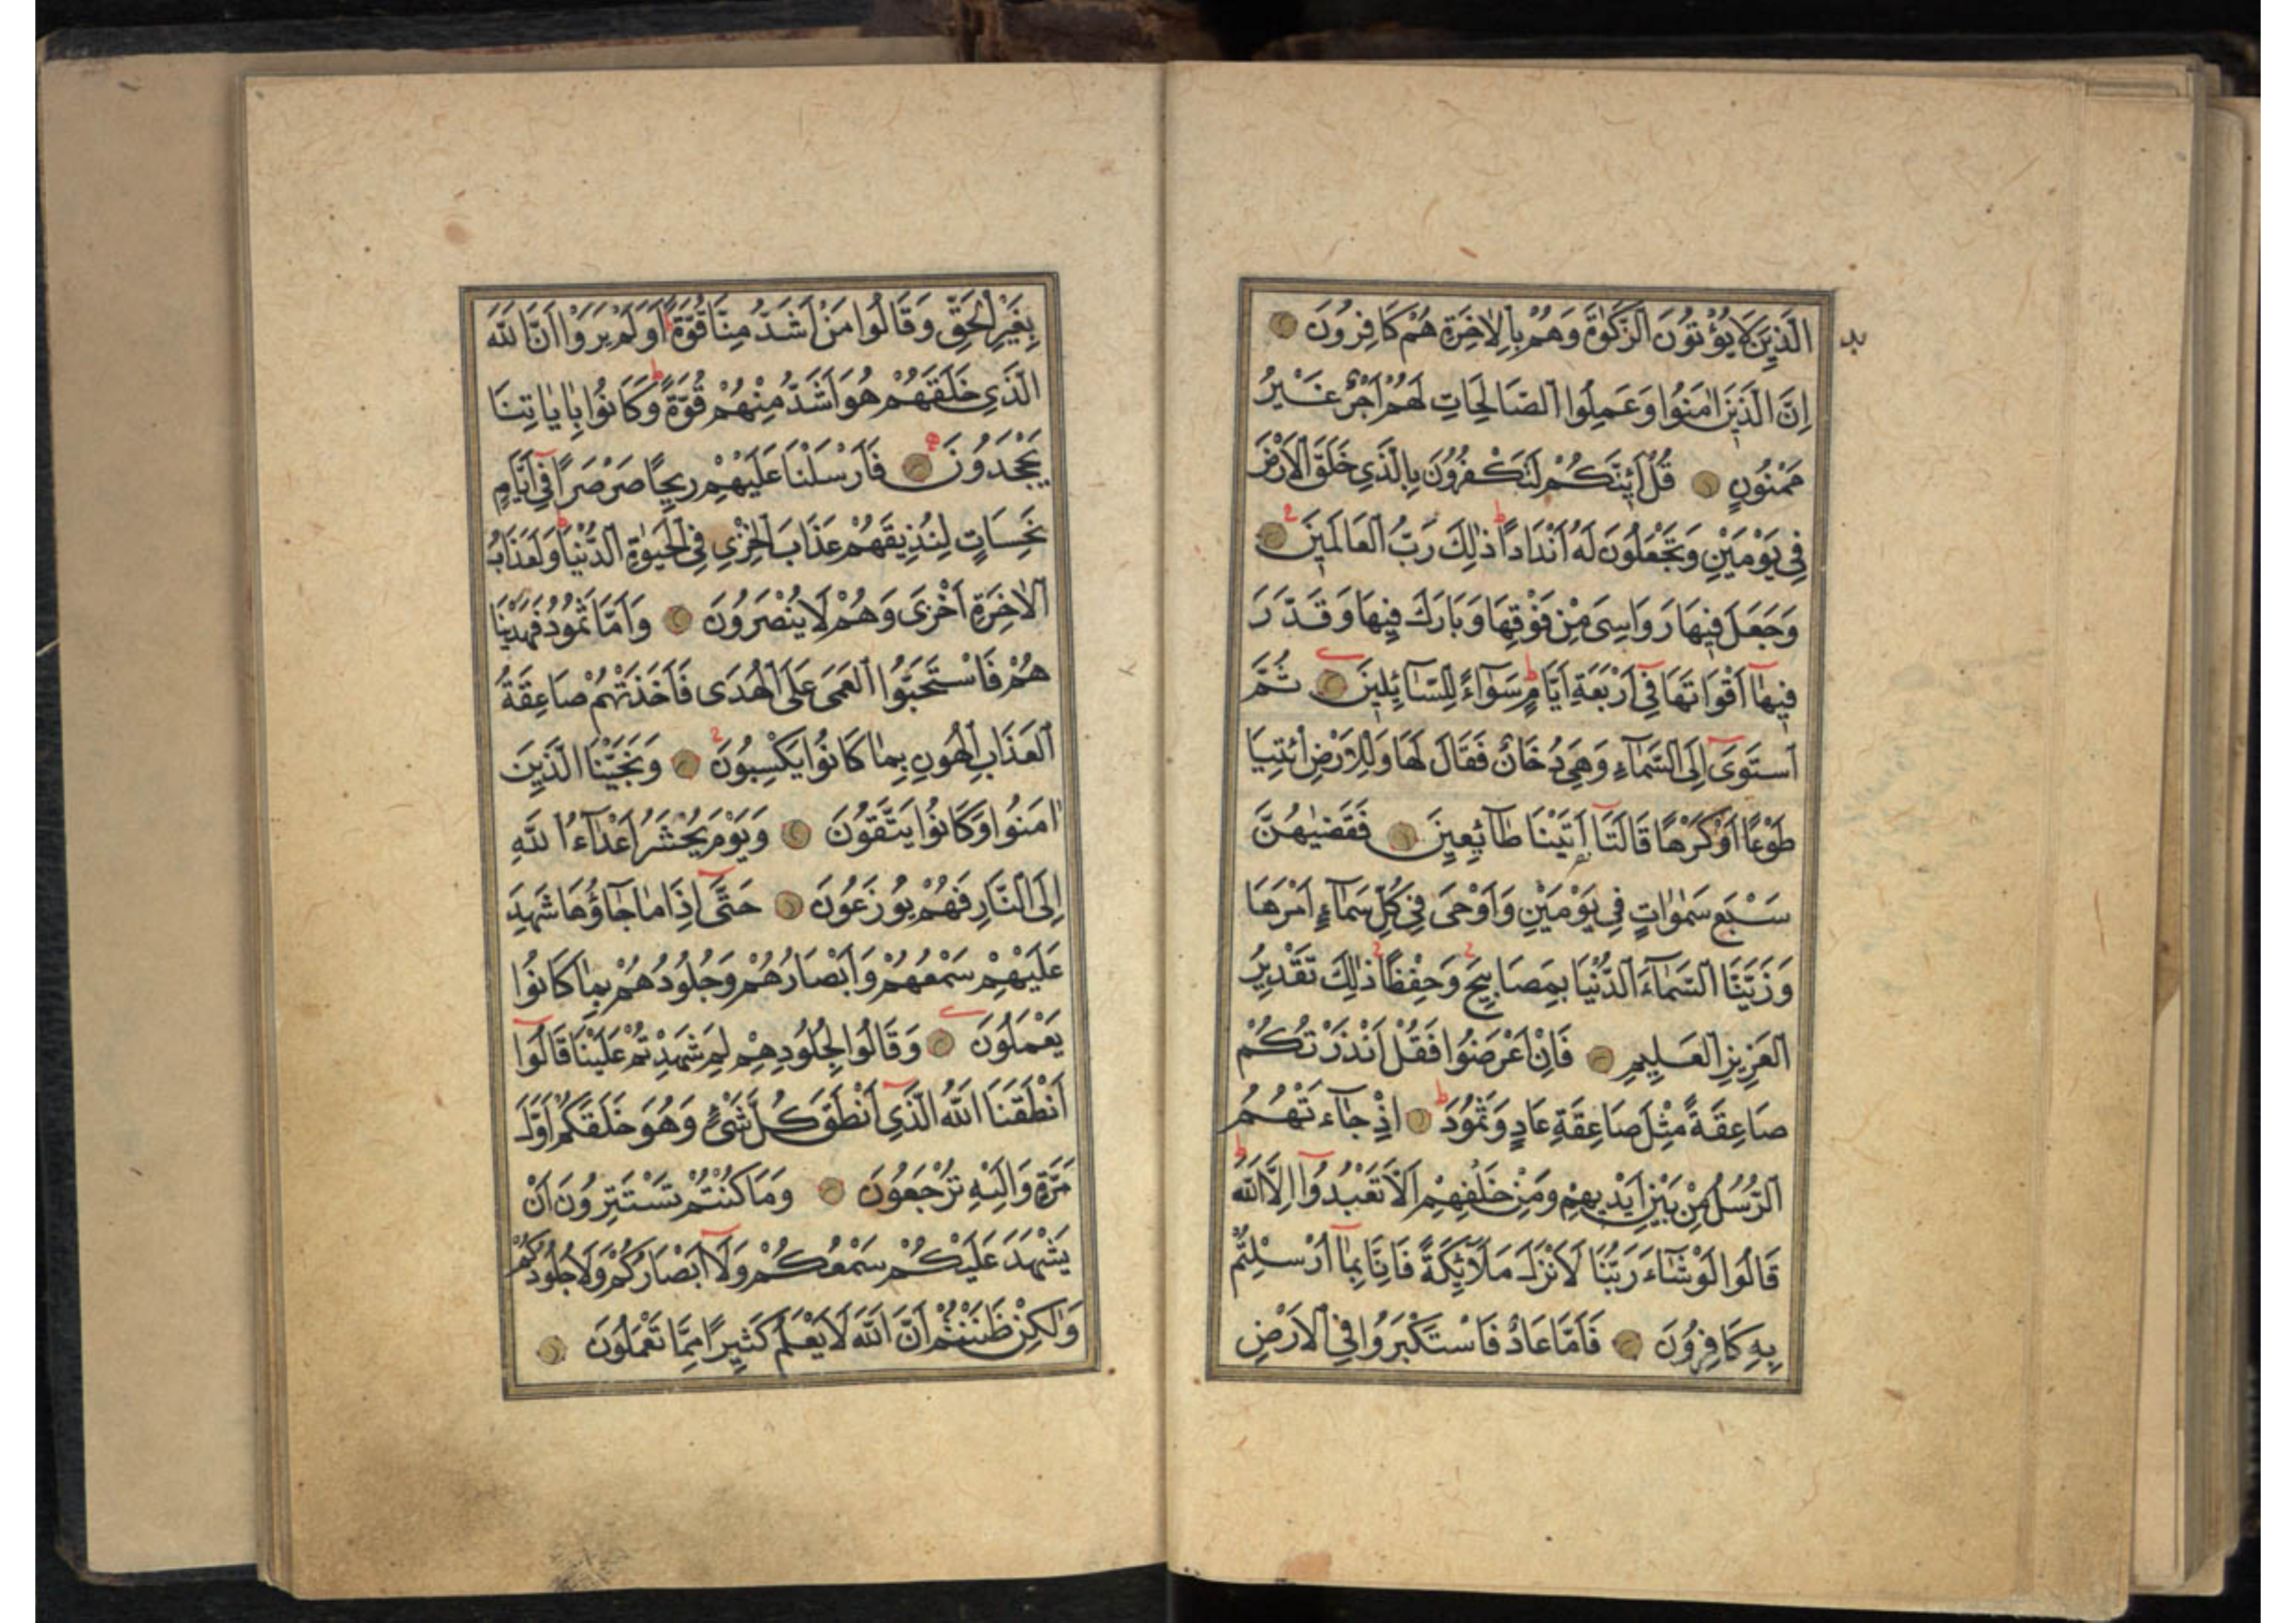 الَّذِينَ لَا يُؤْتُونَ الزَّكٰوةَ وَهُمْ بِالْاٰخِرَةِ هُمْ كَافِرُونَ
اِنَّ الَّذِينَ اٰمَنُوا وَعَمِلُوا الصَّالِحَاتِ لَهُمْ اَجْرٌ غَيْرُ
مَمْنُونٍ قُلْ اَئِنَّكُمْ لَتَكْفُرُونَ بِالَّذِي خَلَقَ الْاَرْضَ
فِي يَوْمَيْنِ وَتَجْعَلُونَ لَهُ اَنْدَادًا ط ذٰلِكَ رَبُّ الْعَالَمِينَ
وَجَعَلَ فِيهَا رَوَاسِيَ مِنْ فَوْقِهَا وَبَارَكَ فِيهَا وَقَدَّرَ
فِيهَٓا اَقْوَاتَهَا فِٓي اَرْبَعَةِ اَيَّامٍ ط سَوَٓاءً لِلسَّٓائِلِينَ ثُمَّ
اسْتَوَىٓ اِلَى السَّمَٓاءِ وَهِيَ دُخَانٌ فَقَالَ لَهَا وَلِلْاَرْضِ ائْتِيَا
طَوْعًا اَوْ كَرْهًا قَالَتَٓا اَتَيْنَا طَٓائِعِينَ فَقَضٰيهُنَّ
سَبْعَ سَمٰوَاتٍ فِي يَوْمَيْنِ وَاَوْحٰى فِي كُلِّ سَمَٓاءٍ اَمْرَهَا
وَزَيَّنَّا السَّمَٓاءَ الدُّنْيَا بِمَصَابِيحَ وَحِفْظًا ذٰلِكَ تَقْدِيرُ
الْعَزِيزِ الْعَلِيمِ فَاِنْ اَعْرَضُوا فَقُلْ اَنْذَرْتُكُمْ
صَاعِقَةً مِثْلَ صَاعِقَةِ عَادٍ وَثَمُودَ ط اِذْ جَٓاءَتْهُمُ
الرُّسُلُ مِنْ بَيْنِ اَيْدِيهِمْ وَمِنْ خَلْفِهِمْ اَلَّا تَعْبُدُٓوا اِلَّا اللّٰهَ ط
قَالُوا لَوْ شَٓاءَ رَبُّنَا لَاَنْزَلَ مَلَٓائِكَةً فَاِنَّا بِمَٓا اُرْسِلْتُمْ
بِهِ كَافِرُونَ فَاَمَّا عَادٌ فَاسْتَكْبَرُوا فِي الْاَرْضِ
بِغَيْرِ الْحَقِّ وَقَالُوا مَنْ اَشَدُّ مِنَّا قُوَّةً ط اَوَلَمْ يَرَوْا اَنَّ اللّٰهَ
الَّذِي خَلَقَهُمْ هُوَ اَشَدُّ مِنْهُمْ قُوَّةً ط وَكَانُوا بِاٰيَاتِنَا
يَجْحَدُونَ فَاَرْسَلْنَا عَلَيْهِمْ رِيحًا صَرْصَرًا فِٓي اَيَّامٍ
نَحِسَاتٍ لِنُذِيقَهُمْ عَذَابَ الْخِزْيِ فِي الْحَيٰوةِ الدُّنْيَا ط وَلَعَذَابُ
الْاٰخِرَةِ اَخْزَى وَهُمْ لَا يُنْصَرُونَ وَاَمَّا ثَمُودُ فَهَدَيْنَا
هُمْ فَاسْتَحَبُّوا الْعَمَى عَلَى الْهُدَى فَاَخَذَتْهُمْ صَاعِقَةُ
الْعَذَابِ الْهُونِ بِمَا كَانُوا يَكْسِبُونَ وَنَجَّيْنَا الَّذِينَ
اٰمَنُوا وَكَانُوا يَتَّقُونَ وَيَوْمَ يُحْشَرُ اَعْدَٓاءُ اللّٰهِ
اِلَى النَّارِ فَهُمْ يُوزَعُونَ حَتَّىٓ اِذَا مَا جَٓاؤُهَا شَهِدَ
عَلَيْهِمْ سَمْعُهُمْ وَاَبْصَارُهُمْ وَجُلُودُهُمْ بِمَا كَانُوا
يَعْمَلُونَ وَقَالُوا لِجُلُودِهِمْ لِمَ شَهِدْتُمْ عَلَيْنَا قَالُٓوا
اَنْطَقَنَا اللّٰهُ الَّذِٓي اَنْطَقَ كُلَّ شَيْءٍ وَهُوَ خَلَقَكُمْ اَوَّلَ
مَرَّةٍ وَاِلَيْهِ تُرْجَعُونَ وَمَا كُنْتُمْ تَسْتَتِرُونَ اَنْ
يَشْهَدَ عَلَيْكُمْ سَمْعُكُمْ وَلَٓا اَبْصَارُكُمْ وَلَا جُلُودُكُمْ
وَلٰكِنْ ظَنَنْتُمْ اَنَّ اللّٰهَ لَا يَعْلَمُ كَثِيرًا مِمَّا تَعْمَلُونَ